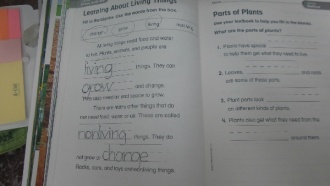 Learning About Living Things
Fill in the blanks. Use the words from the box.
change grow living nonliving
All living things need food and water
to live. Plants, animals, and people are
living things. They can
grow and change.
They also need air and space to grow.
There are many other things that do
not need food, water or air. These are called
nonliving things. They do
not grow or change
Rocks, cars, and toys are nonliving things.
Parts of Plants
Use your textbook to help you fill in the blanks.
What are the parts of plants?
1. Plants have special
to help them get what they need to live.
2. Leaves, and seeds
are some of these parts.
3. Plant parts look
on different kinds of plants.
4. Plants also get what they need from the
around them.